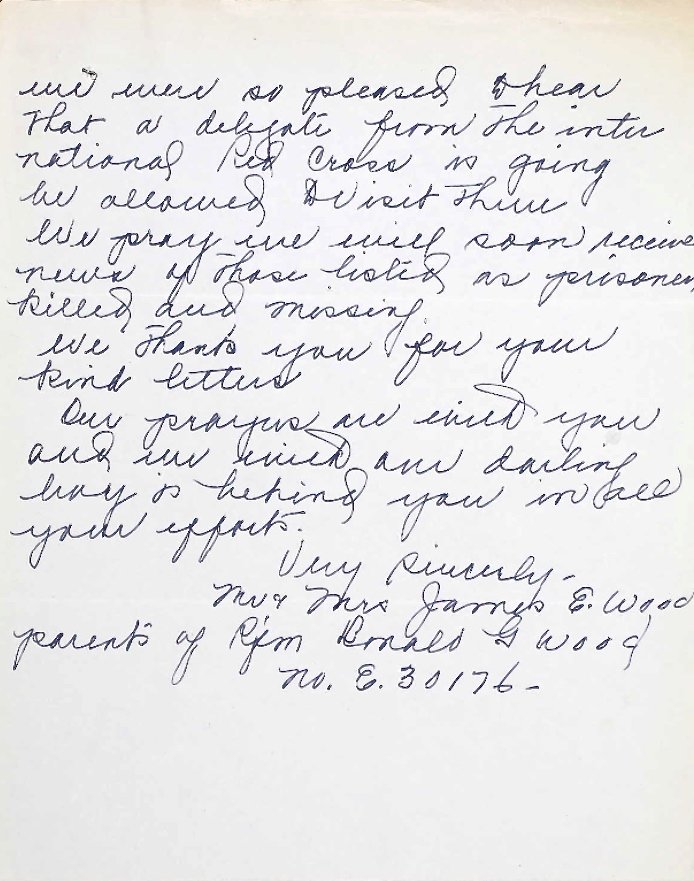 we were so pleased to hear
that a delegate from the inter
national Red Cross is going
be allowed to visit there
We pray we will soon receive
news of those listed as prisoners
killed and missing.
We thank you for your
kind letters
Our prayers are with you
and we with our darling
boy is behind you in all
your efforts.
Very Sincerly -
Mr & Mrs James E. Wood
parents of Rfm Ronald G Wood
No. E. 30176 -